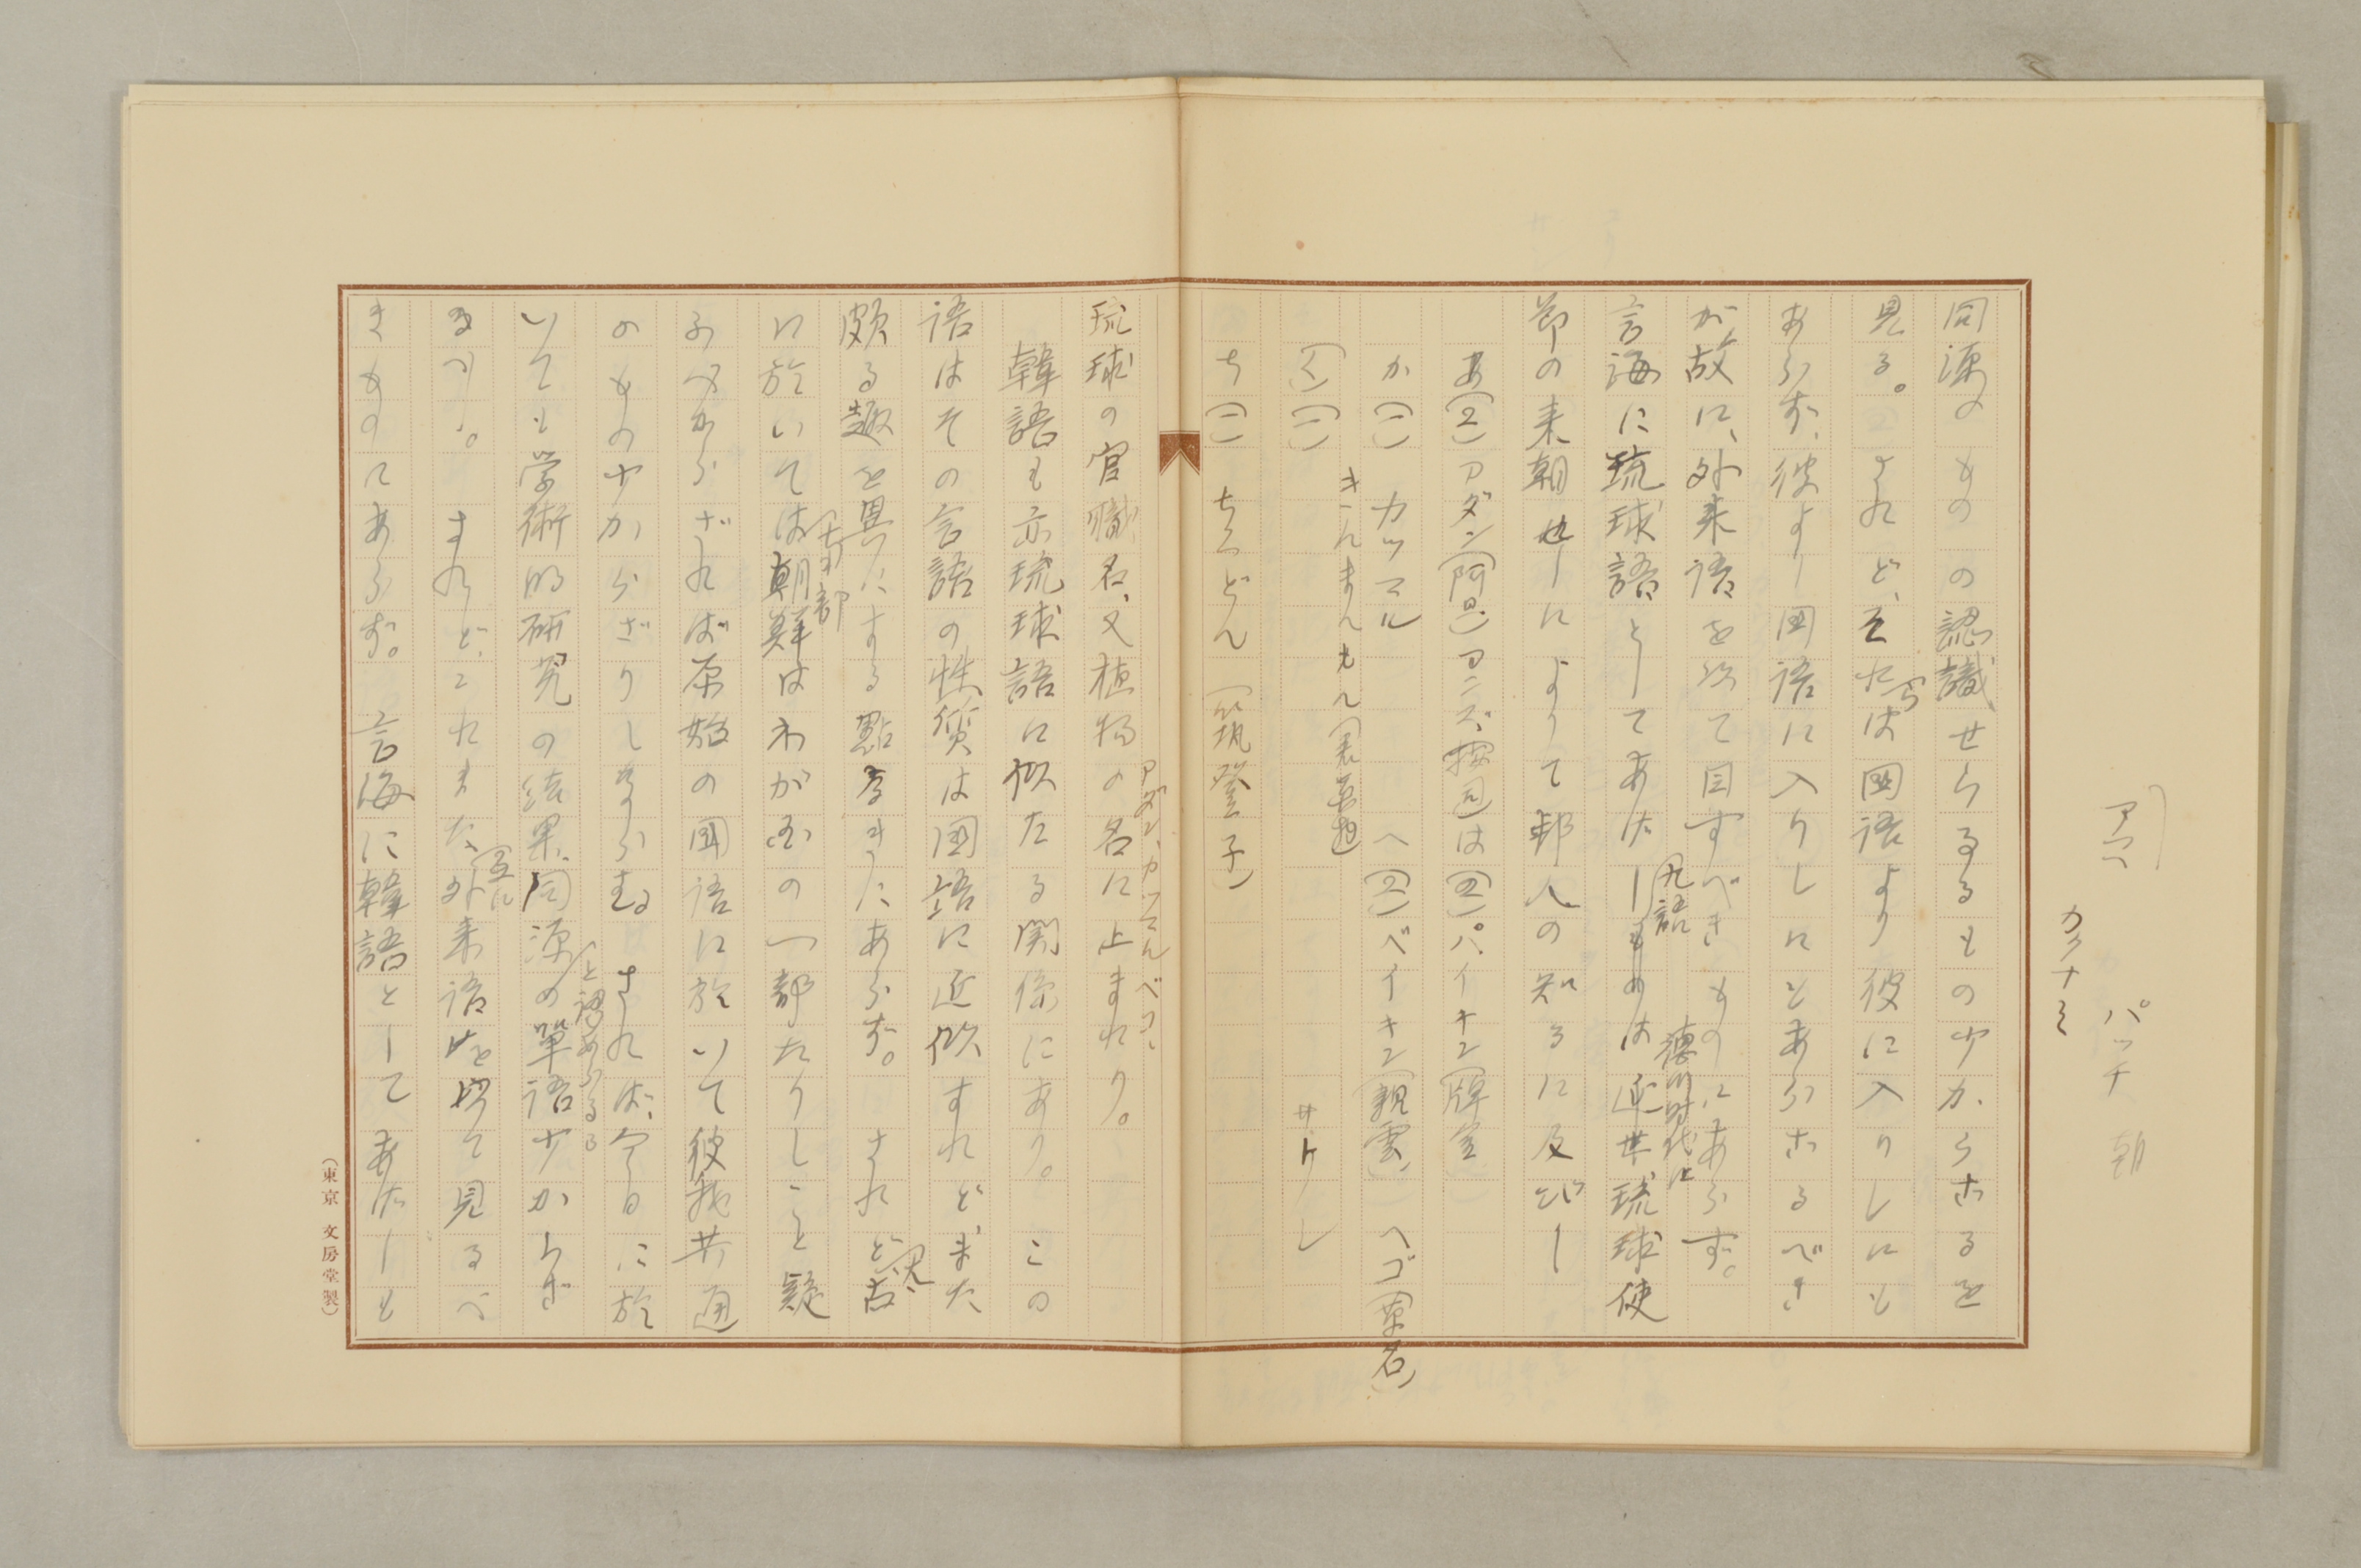 アマヘ パッチ 朝
カタナミ
同源のものの認識せらるるもの少からざるを
見る。されど、それらは国語より彼に入りしにも
あらず、彼より国語に入りしにとあらざるべき
が故に、外来語を以て目すべきものにあらず。
言海に琉球語としてあげしは
凡語
徳川時代に
近世琉球使
節の来朝せしによりて邦人の知るに及びし
あ(2)アダン(阿旦)アンズ、按司は(四)パイキン(牌金)
か(一)カツマル へ(二)ベイキン(親雲) ヘゴ(草名)
きんまんもん
く(一) サトケレ
ち(一) ちくどん(筑登子)
アダン、カツマル、ヘゴ、
琉球の官職名、又植物の名に止まれり。
韓語も亦琉球語に似たる関係にあり。この
語はその言語の性質は国語に近似すれどまた
頗る趣を異にする點なきにあらず。されど古
に於いては
南部
朝鮮はわが国の一部たりしこと疑
ふべからざれば原始の国語に於いて彼我共通
のもの少からざりしならむ。されば、今日に於
と認めらるる
いても学術的研究の結果、同源の単語少からざ
互に
るべし。されど、これまた、外来語を以て見るべ
きものにあらず。言海に韓語としてあげしも
(東京 文房堂製)